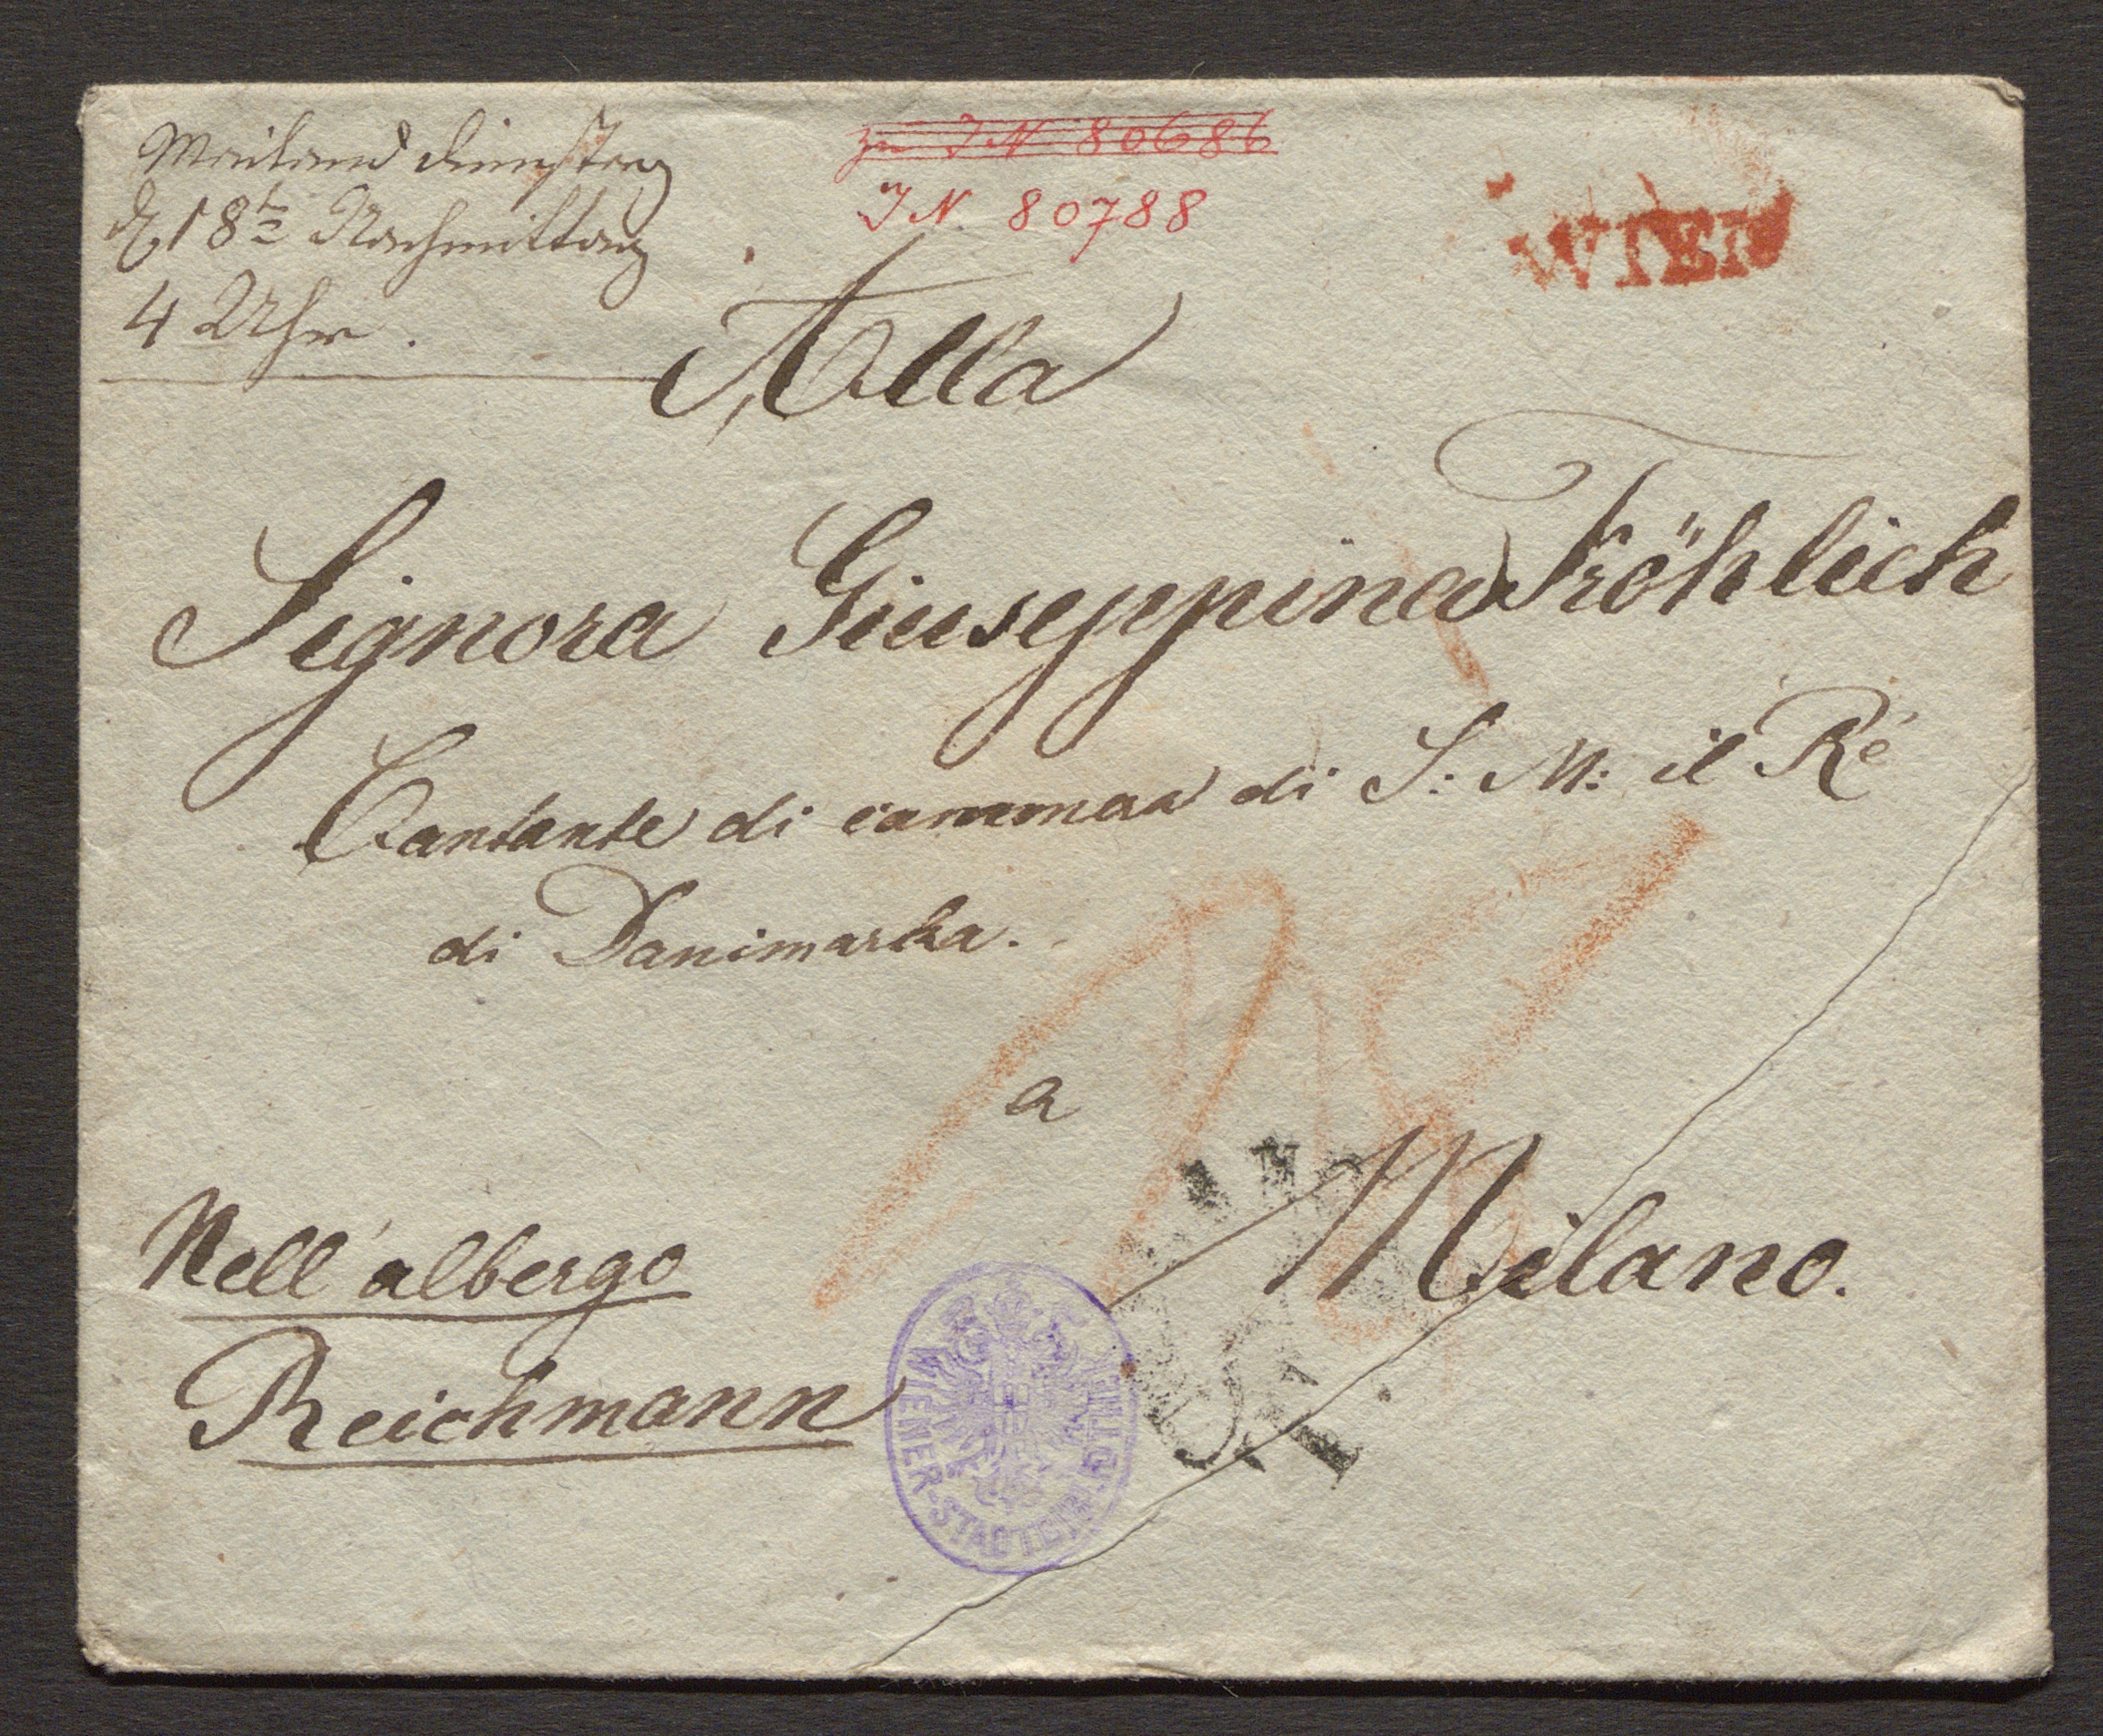 Mailand Dienstag
d 18t Nachmittag
4 Uhr.
zu I N 80686
I N. 80788
WIEN
Alla
Signora Giuseppina Fröhlich
Cantante di cammaa di S: M: il Ré
di Danimarka.
a
Milano.
Nell'albergo
Reichmann
WIENER-STADTBIBLIOTHEK